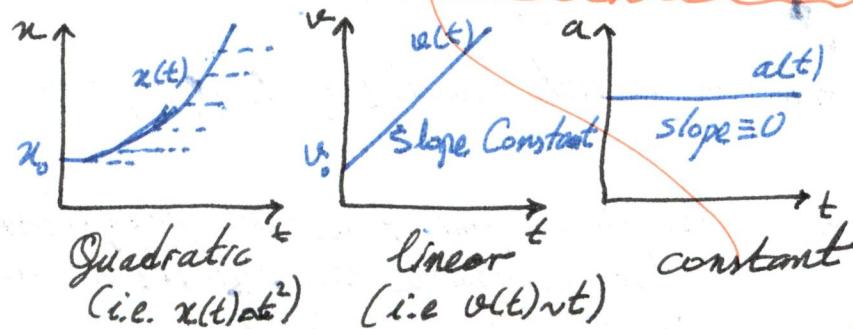 x
x(t)
x₀
t
Quadratic
(i.e. x(t)∝t²)
v
v(t)
Slope Constant
v₀
t
linear
(i.e v(t)~t)
a
a(t)
slope≡0
t
constant